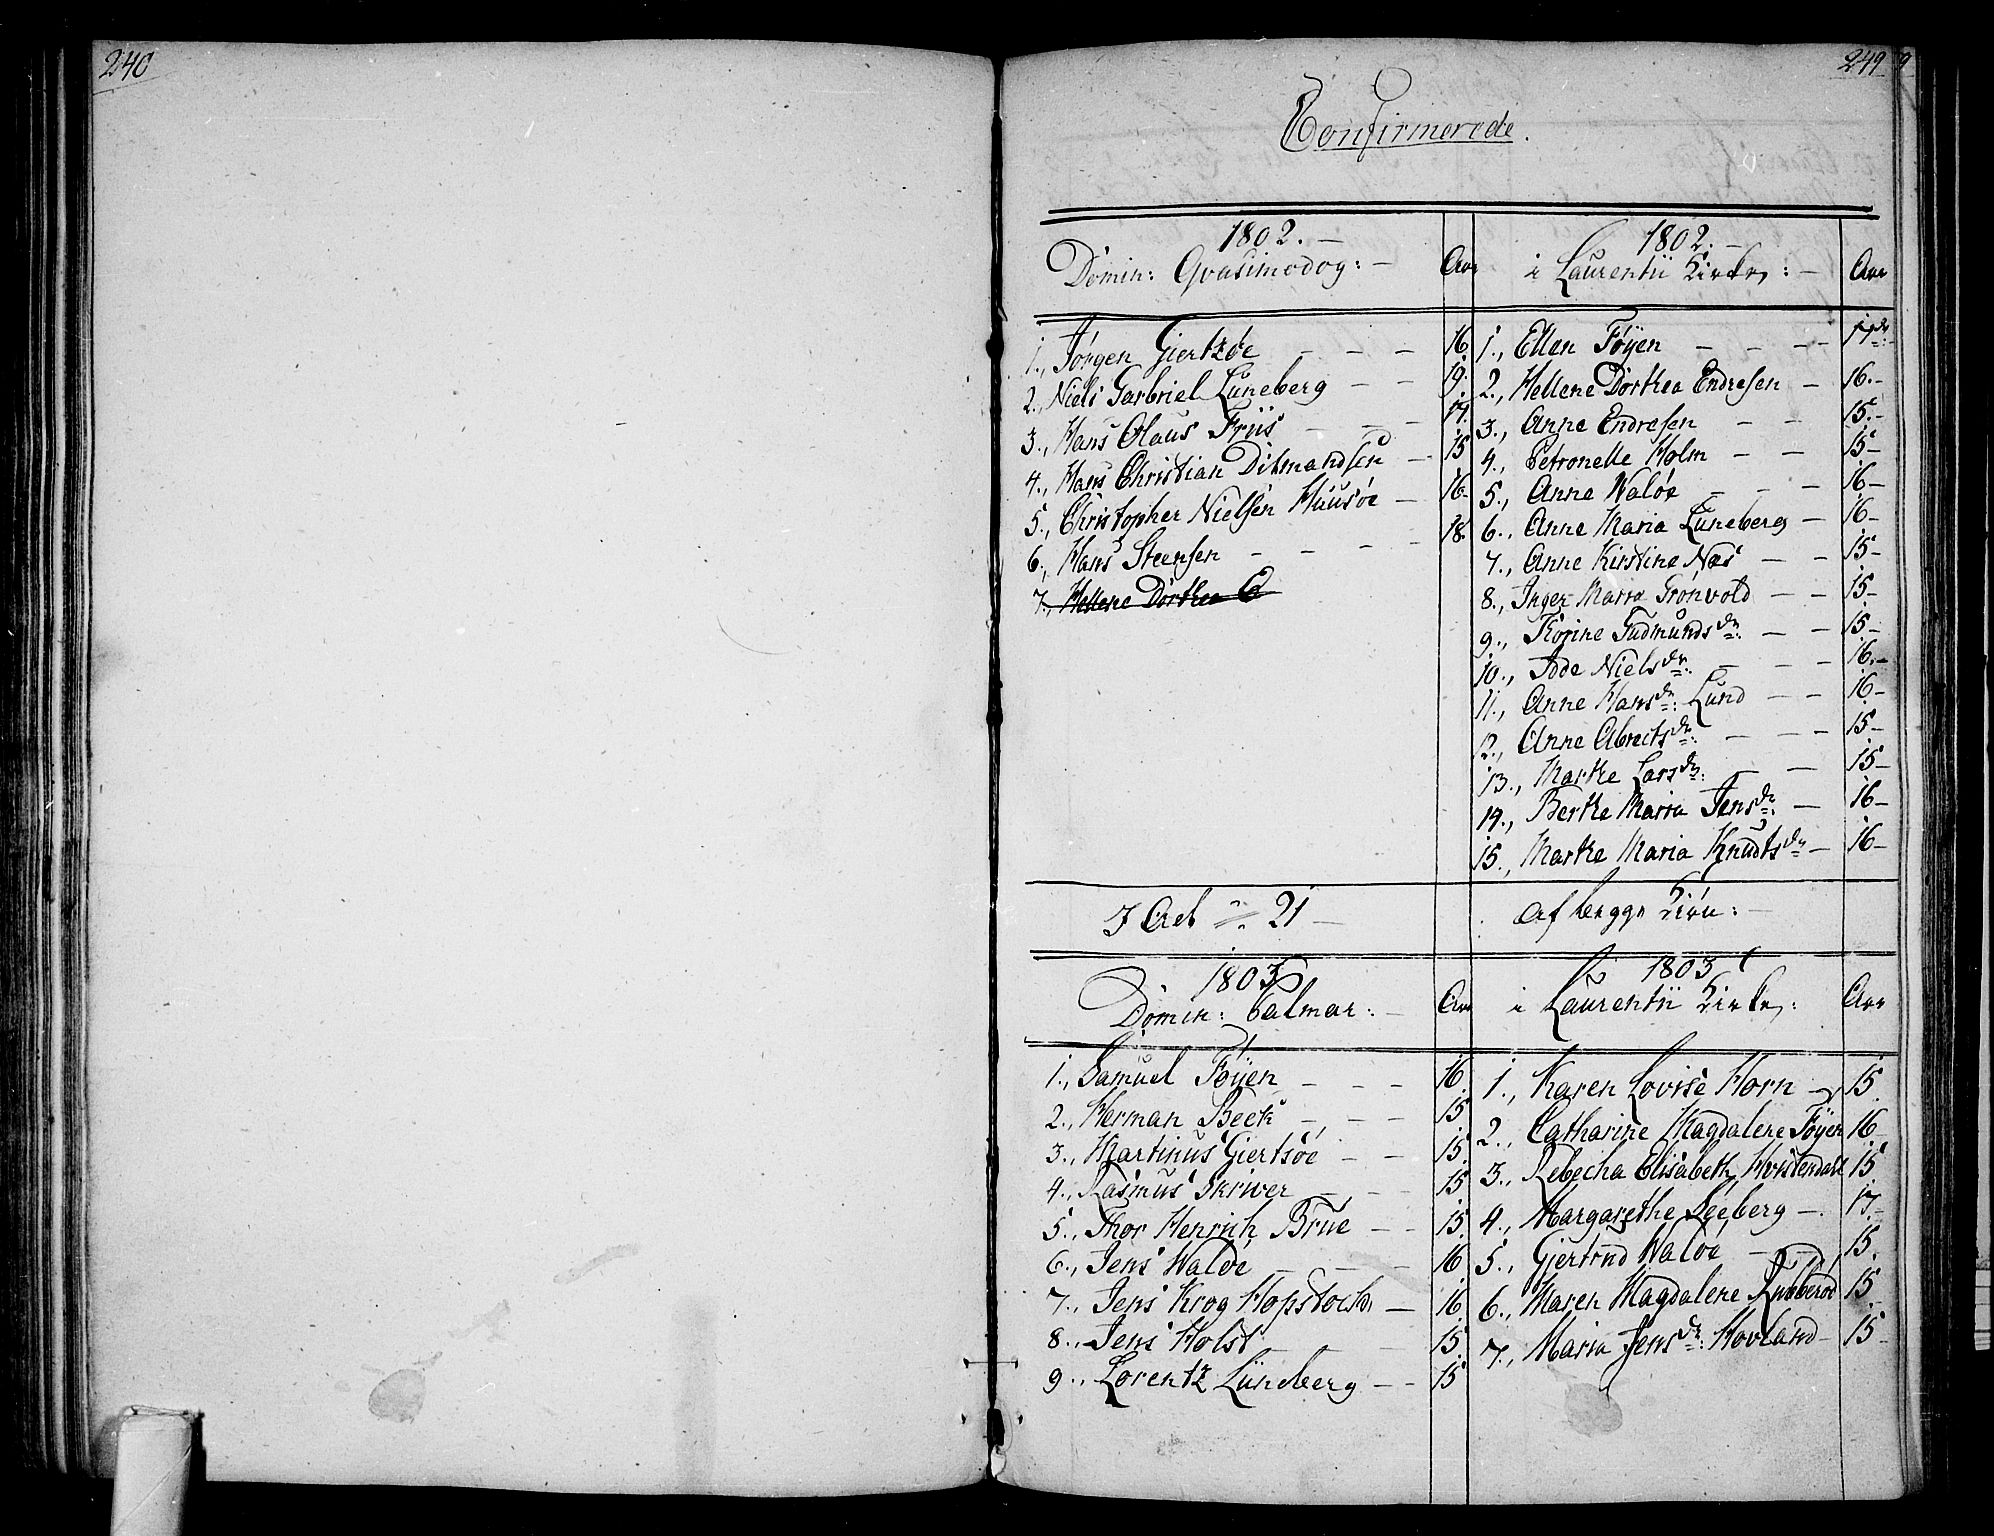 240
249
Confirmerede.
1802. —
Domin: Qvasimodog: —
Aar
1., Jørgen Giertsøe — — — 16
2., Niels Gabriel Lüneberg — — 19.
3., Hans Olaus Friis — — — 17.
4., Hans Christian Ditmandsen — 15
5., Christopher Nielsen Huusøe — 16.
6., Hans Steensen — — — — 18.
7., Hellene Dorthea E
1802. —
i Laurentii Kirke: —
Aar
1., Ellen Föyen — — — — 17
2., Hellene Dorthea Endresen — 16. —
3., Anne Endresen — — 15. —
4., Petronelle Holm — — 15 —
5., Anne Waløe — — — 16 —
6., Anne Maria Lüneberg — 16 —
7., Anne Kirstine Næs — — 15 —
8., Inger Maria Grönvold — — 15 —
9., Torine Gudmundsdr: — — 15 —
10., Adde Nielsdr: — — — 16. —
11., Anne Hansdr: Lund — — 16 —
12., Anne Abraitsdr: — — — 15 —
13., Marthe Larsdr: — 15 —
14., Berthe Maria Jensdr: — 16 —
15., Marthe Maria Knudtsdr — 16 —
I Alt 21 —
Af begge Kiön: —
1803
Domin: Palmar: —
Aar
1., Samuel Föyen — — — 16
2., Herman Beck — — — 15
3., Martinus Giertsøe — — 15
4., Rasmus Skriver — — 15
5., Thor Henrich Brue — — 15
6., Jens Waløe — — — 16
7., Jens Krog Hopstock — 16
8., Jens Holst — 15
9., Lorentz Lüneberg — — 15
1803
i Laurentii Kirke:
Aar
1., Karen Lovise Horn — 15.
2., Catharine Magdalene Föyen 16
3., Rebecha Elisabeth Hvistendahl 15
4., Margarethe Seeberg — 17 —
5., Gjertrud Waløe — — 15.
6., Maren Magdalene 15
7., Maria Jensdr: Hovland — 15 —